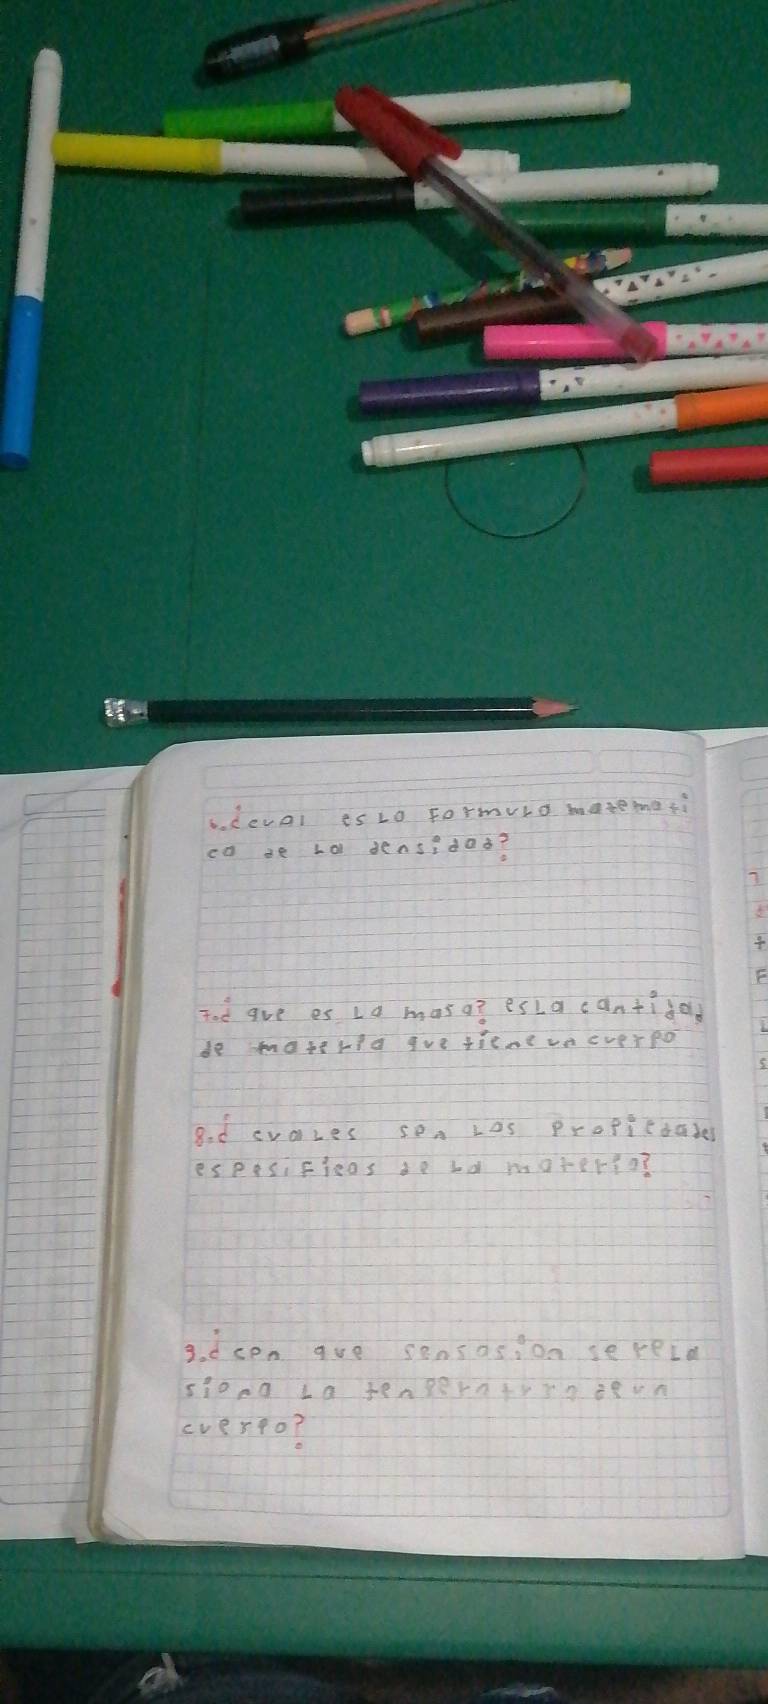 6.¿cual es La Formula matemati
ca de La densidad?
7.¿que es La masa? es La cantidad
de materia que tiene un cuerpo
8.¿cuales son Los propiedades
espesificos de La materia?
9.¿con que sensasion se rela
siona La tenperatura de un
cuerpo?